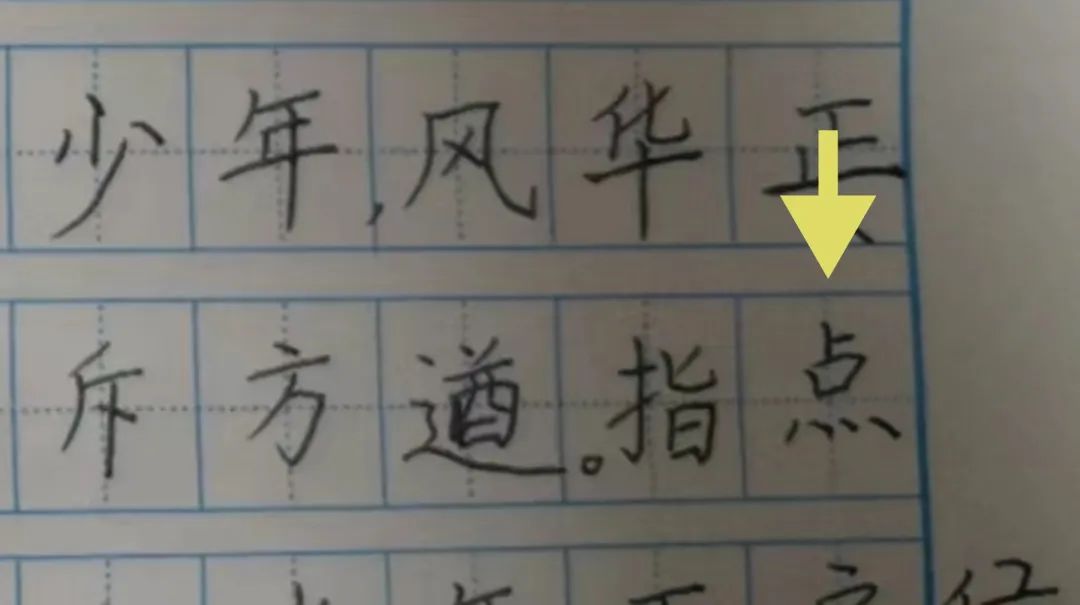 少年,风华正
斥方遒。指点